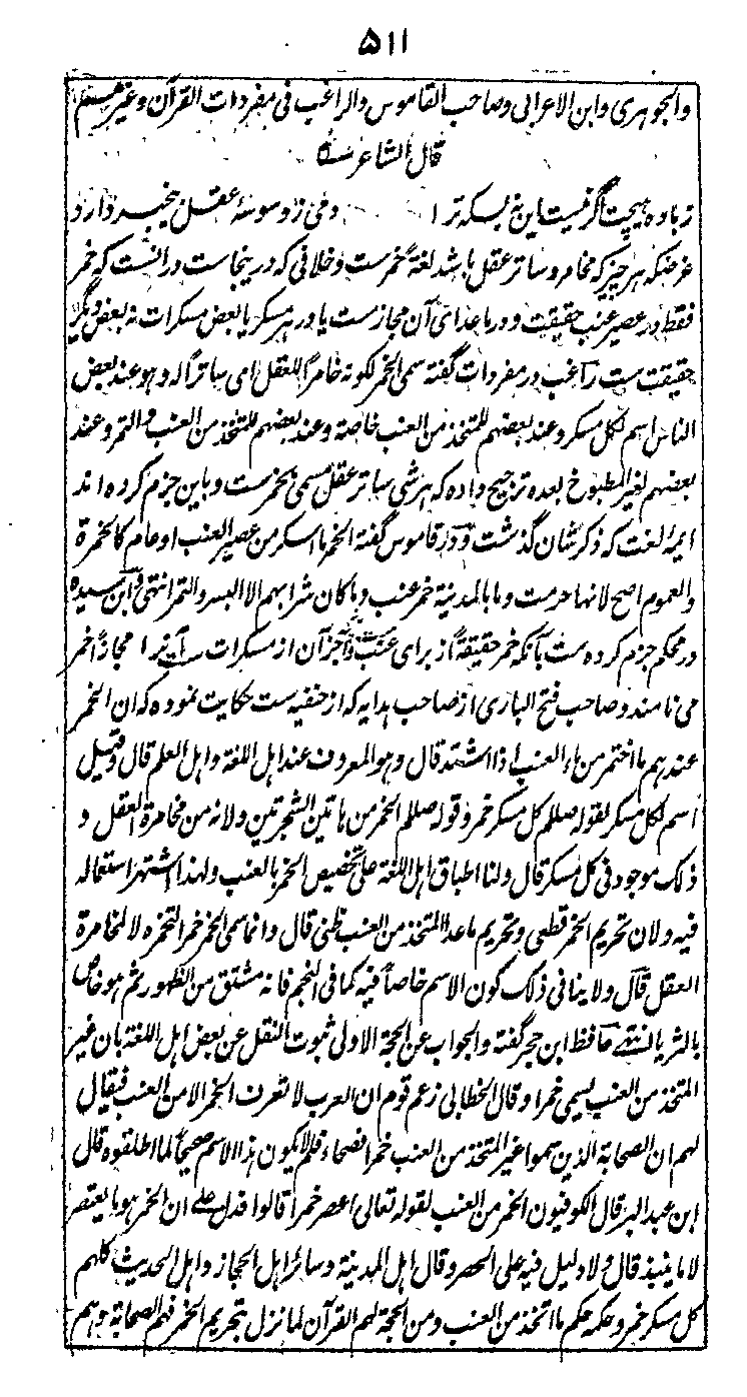 ۵۱۱
والجوہری وابن الاعرابی وصاحب القاموس والراغب فی مفردات القرآن وغیرہم
قال الشاعر
زبادہ ہیچت اگر نیست این نہ بسکہ ترا دمی ز وسوسۂ عقل بیخبر دارد
غرضکہ ہر چیز کہ مخامر و ساتر عقل باشد لغۃً خمرست و خلافی کہ درینجاست درانست کہ خمر
فقط در عصیر عنب حقیقت و در ماعدای آن مجازست یا در ہر مسکر یا بعض مسکرات نہ بعض دیگر
حقیقت ست راغب در مفردات گفتہ سمی الخمر لکونہ خامراً للعقل ای ساتراً لہ وہو عند بعض
الناس اسم لکل مسکر وعند بعضہم للمتخذ من العنب خاصۃ وعند بعضہم للمتخذ من العنب والتمر وعند
بعضہم لغیر المطبوخ بعدہ ترجیح دادہ کہ ہر شی ساتر عقل مسمی بخمرست و باین جزم کردہ اند
ایمۂ لغت کہ ذکر شان گذشت و در قاموس گفتہ الخمر ما اسکر من عصیر العنب او عام کالخمرۃ
والعموم اصح لانہا حرمت وما بالمدینۃ خمر عنب وما کان شرابہم الا البسر والتمر انتہی وابن سیدہ
در محکم جزم کردہ ست بآنکہ خمر حقیقۃً از برای عنب ست و جز آن از مسکرات را مجازاً خمر
می نامند و صاحب فتح الباری از صاحب ہدایہ کہ از حنفیہ ست حکایت نمودہ کہ ان الخمر
عندہم ما اختمر من ماء العنب اذا اشتد قال وہو المعروف عند اہل اللغۃ واہل العلم قال وقیل
اسم لکل مسکر لقولہ صلعم کل مسکر خمر وقولہ صلعم الخمر من ہاتین الشجرتین ولانہ من مخامرۃ العقل و
ذلک موجود فی کل مسکر قال ولنا اطباق اہل اللغۃ علی تخصیص الخمر بالعنب ولہذا اشتہر استعمالہ
فیہ ولان تحریم الخمر قطعی وتحریم ماعدا المتخذ من العنب ظنی قال وانما سمی الخمر خمراً لتخمرہ لا لمخامرۃ
العقل قال ولا ینافی ذلک کون الاسم خاصاً فیہ کما فی النجم فانہ مشتق من الظہور ثم ہو خاص
بالثریا انتہی حافظ ابن حجر گفتہ والجواب عن الحجۃ الاولی ثبوت النقل عن بعض اہل اللغۃ بان غیر
المتخذ من العنب یسمی خمرا وقال الخطابی زعم قوم ان العرب لا تعرف الخمر الا من العنب فیقال
لہم ان الصحابۃ الذین سموا غیر المتخذ من العنب خمراً فصحاء فلو لم یکون ہذا الاسم صحیحاً لما اطلقوہ قال
ابن عبد البر قال الکوفیون الخمر من العنب لقولہ تعالی اعصر خمراً قالوا فدل علی ان الخمر ہو ما یعتصر
لا ما ینبذ قال ولا دلیل فیہ علی الحصر وقال اہل المدینۃ وسائر اہل الحجاز واہل الحدیث کلہم
کل مسکر خمر وحکمہ حکم ما اتخذ من العنب ومن الحجۃ لہم القرآن لما نزل بتحریم الخمر فہم الصحابۃ وہم